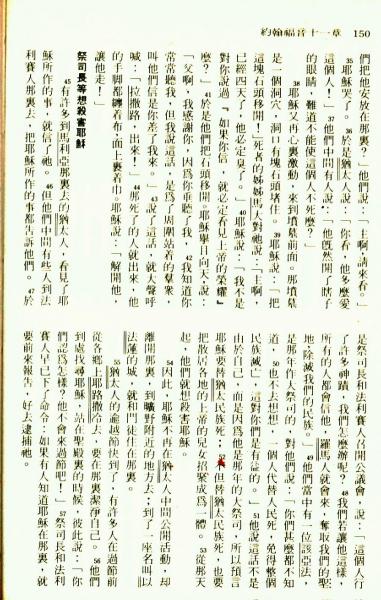 約翰福音十一章 150
們把他安放在那裏？」他們說：「主啊，請來看。」
35耶穌哭了。36於是猶太人說：「你看，他多麼愛
他！」37他們中間有人說：「他旣然開了瞎子
的眼睛，難道不能使這個人不死麼？」
38耶穌又再心裏激動，來到墳墓前面。那墳墓
是一個洞穴，洞口有塊石頭堵住。39耶穌說：「把
這塊石頭移開！」死者的姊姊馬大對祂說：「主啊，
已經四天了，他必定臭了。」40耶穌說：「我不是
對你說過『如果你信，就必定看見上帝的榮耀』
麼？」41於是他們把石頭移開。耶穌舉目向天說：
「父啊，我感謝你，因爲你垂聽了我，42我知道你
常常聽我，但我說這話，是爲了周圍站着的羣衆，
叫他們信是你差了我來。」43說了這話，就大聲呼
喊：「拉撒路，出來！」44那死了的人就出來，他
的手脚都纏着布，面上裹着巾。耶穌說：「解開他，
讓他走！」
祭司長等想殺害耶穌
45有許多到馬利亞那裏去的猶太人，看見了耶
穌所作的事，就信了祂。46但他們中間有些人到法
利賽人那裏去，把耶穌所作的事都告訴他們。47於
是祭司長和法利賽人召開公議會，說：「這個人行
了許多神蹟，我們怎麼辦呢？48我們若讓他這樣，
所有的人都會信他，羅馬人就會來，奪取我們的聖
地，除滅我們的民族。」49他們當中有一位該亞法，
是那年作大祭司的，對他們說：「你們甚麼都不知
道，50也不去想想，一個人代替人民死，免得整個
民族滅亡，這對你們是有益的。」51他說這話不是
由於自己，而是因爲他是那年的大祭司，所以預言
耶穌要替猶太民族死；52不但替猶太民族死，也要
把散居各地的上帝的兒女招聚成爲一體。53從那天
起，他們就想殺害耶穌。
54因此，耶穌不再在猶太人中間公開活動，却
離開那裏，到曠野附近的地方去；到了一座名叫以
法蓮的城，就和門徒住在那裏。
55猶太人的逾越節快到了，有許多人在過節前
從各鄉上耶路撒冷去，要在那裏潔淨自己。56他們
到處找尋耶穌，站在聖殿裏的時候，彼此說：「你
們認爲怎樣？他不會來過節吧！」57祭司長和法利
賽人早已下了命令：如果有人知道耶穌在那裏，就
要前來報告，好去逮捕祂。